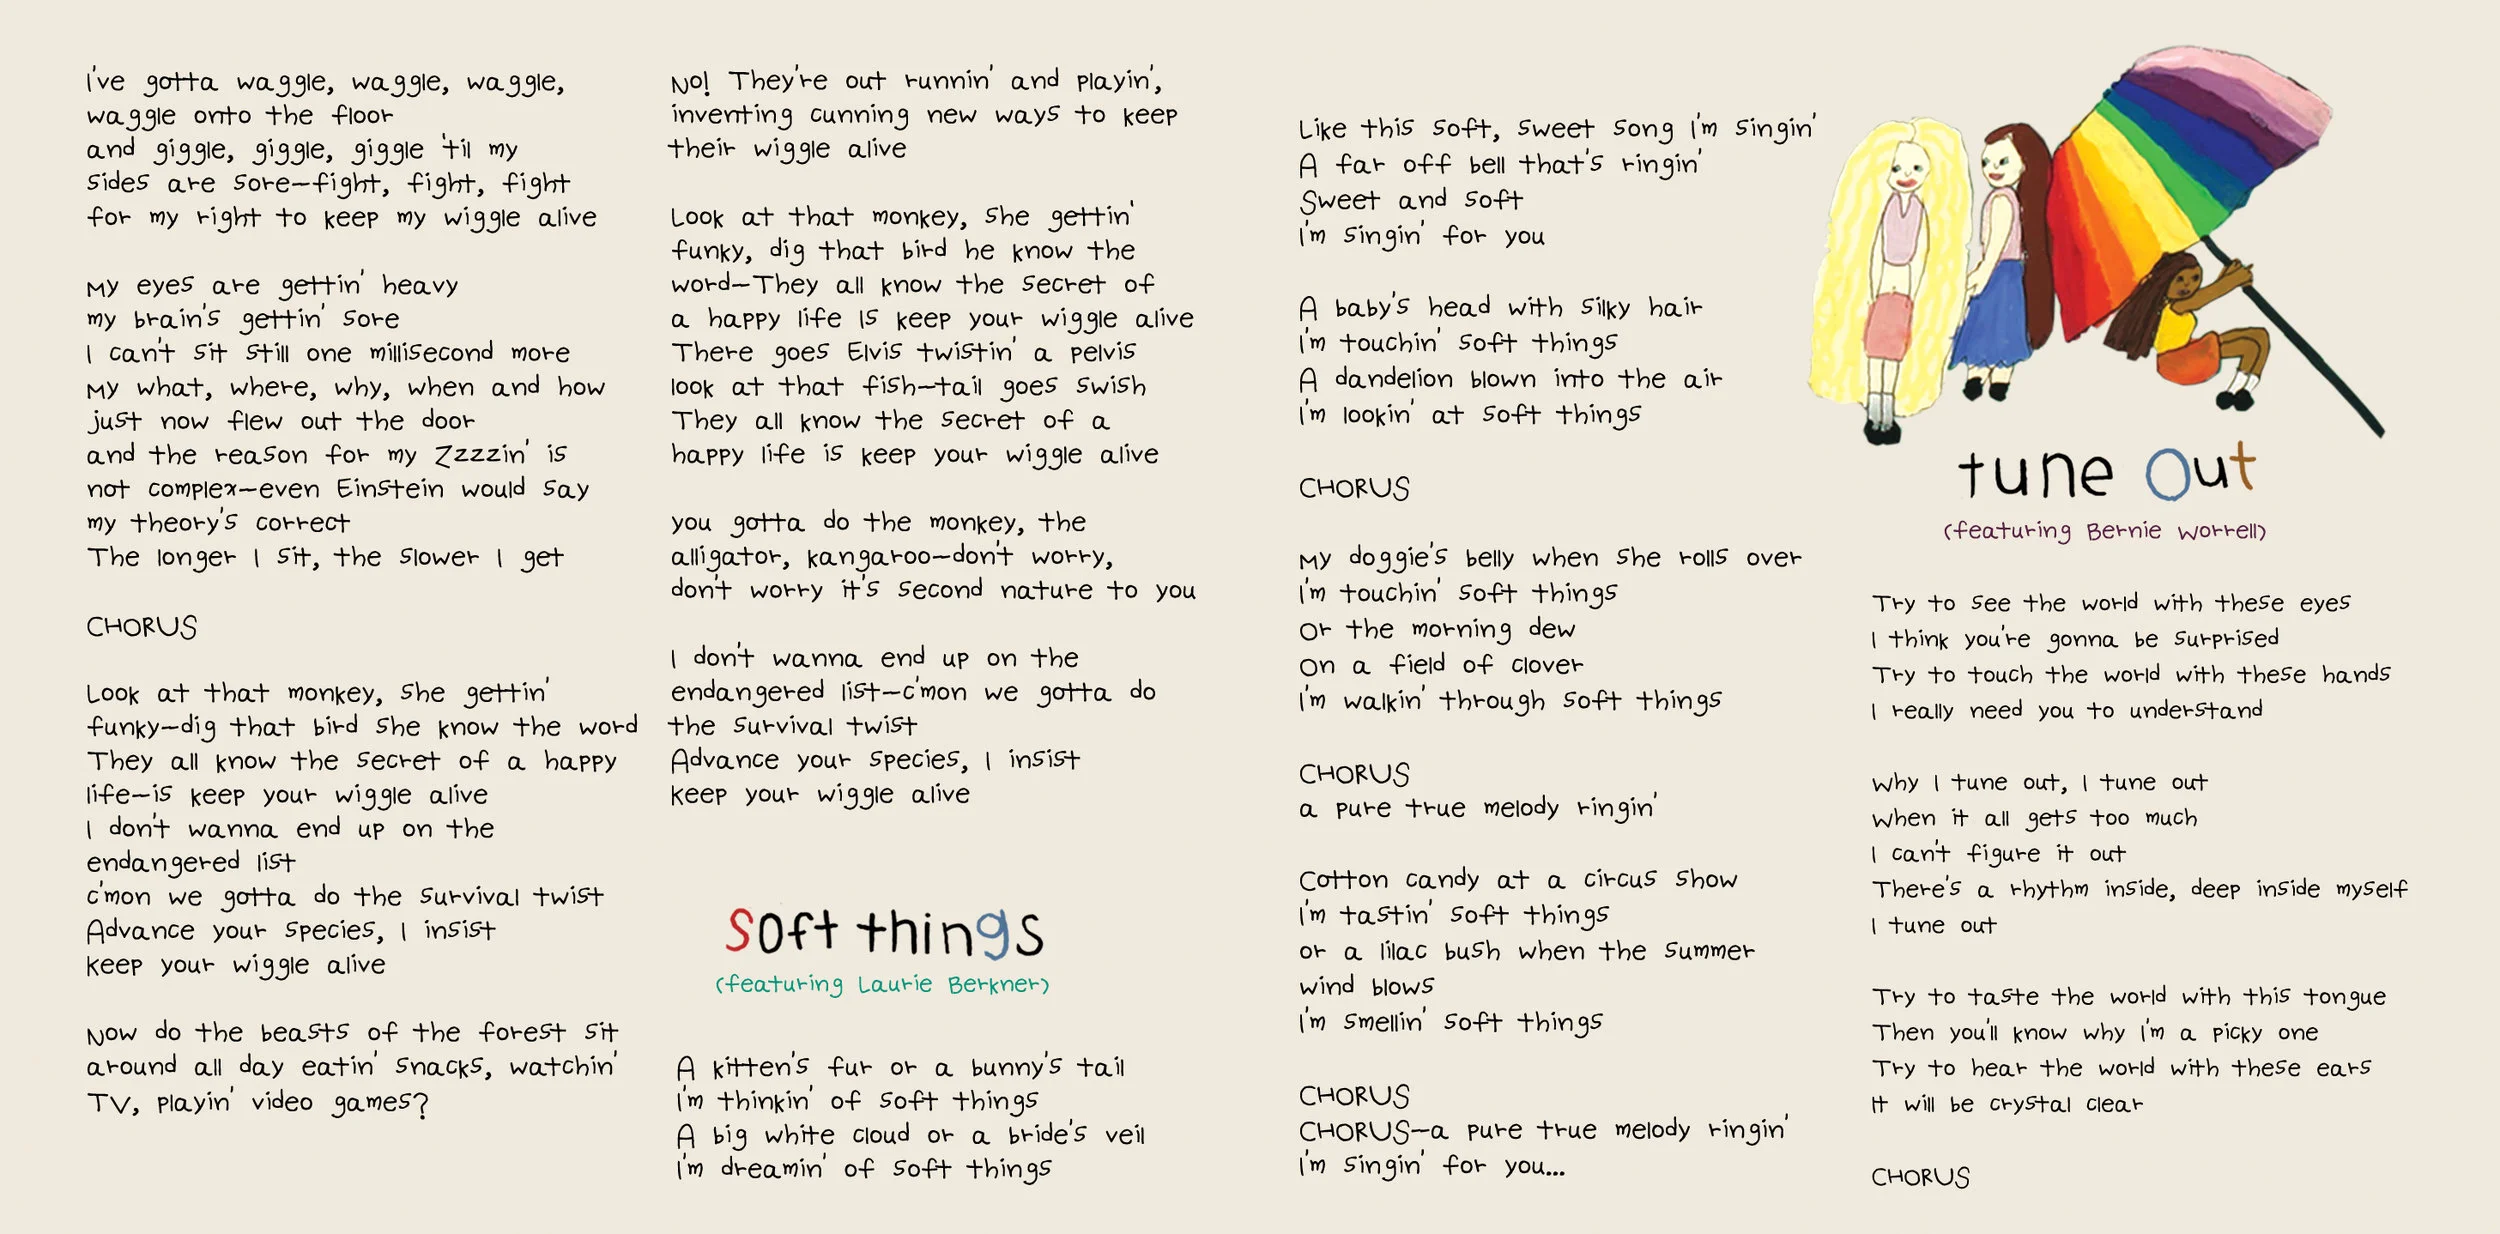 I've gotta waggle, waggle, waggle,
waggle onto the floor
and giggle, giggle, giggle 'til my
sides are sore—fight, fight, fight
for my right to keep my wiggle alive
My eyes are gettin' heavy
my brain's gettin' sore
I can't sit still one millisecond more
My what, where, why, when and how
just now flew out the door
and the reason for my Zzzzin' is
not complex—even Einstein would say
my theory's correct
The longer I sit, the slower I get
CHORUS
Look at that monkey, she gettin'
funky—dig that bird she know the word
They all know the secret of a happy
life—is keep your wiggle alive
I don't wanna end up on the
endangered list
c'mon we gotta do the survival twist
Advance your species, I insist
keep your wiggle alive
Now do the beasts of the forest sit
around all day eatin' snacks, watchin'
TV, playin' video games?
No! They're out runnin' and playin',
inventing cunning new ways to keep
their wiggle alive
Look at that monkey, she gettin'
funky, dig that bird he know the
word—They all know the secret of
a happy life is keep your wiggle alive
There goes Elvis twistin' a pelvis
look at that fish—tail goes swish
They all know the secret of a
happy life is keep your wiggle alive
you gotta do the monkey, the
alligator, kangaroo—don't worry,
don't worry it's second nature to you
I don't wanna end up on the
endangered list—c'mon we gotta do
the survival twist
Advance your species, I insist
keep your wiggle alive
soft things
(featuring Laurie Berkner)
A kitten's fur or a bunny's tail
I'm thinkin' of soft things
A big white cloud or a bride's veil
I'm dreamin' of soft things
Like this soft, sweet song I'm singin'
A far off bell that's ringin'
Sweet and soft
I'm singin' for you
A baby's head with silky hair
I'm touchin' soft things
A dandelion blown into the air
I'm lookin' at soft things
CHORUS
My doggie's belly when she rolls over
I'm touchin' soft things
Or the morning dew
On a field of clover
I'm walkin' through soft things
CHORUS
a pure true melody ringin'
Cotton candy at a circus show
I'm tastin' soft things
or a lilac bush when the summer
wind blows
I'm smellin' soft things
CHORUS
CHORUS—a pure true melody ringin'
I'm singin' for you...
tune out
(featuring Bernie Worrell)
Try to see the world with these eyes
I think you're gonna be surprised
Try to touch the world with these hands
I really need you to understand
Why I tune out, I tune out
When it all gets too much
I can't figure it out
There's a rhythm inside, deep inside myself
I tune out
Try to taste the world with this tongue
Then you'll know why I'm a picky one
Try to hear the world with these ears
It will be crystal clear
CHORUS